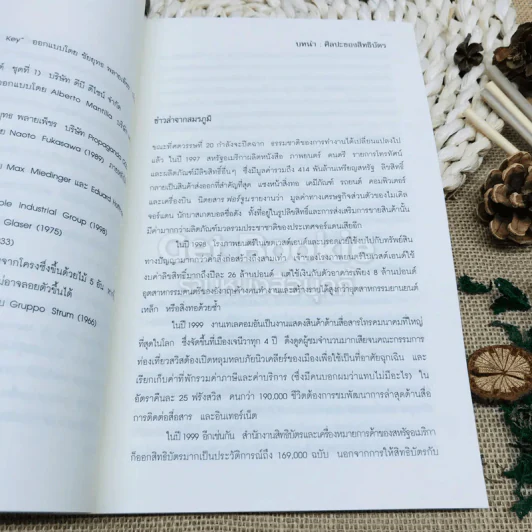 Key" ออกแบบโดย ชัยยุทธ พลายเพ็ชร
ชุดที่ 1) บริษัท ดีบี ดีไซน์ จำกัด
ออกแบบโดย Alberto Mantilla
ยุทธ พลายเพ็ชร บริษัท Propaganda
โดย Naoto Fukasawa (1989)
Max Miedinger และ Eduard Hoffmann
Apple Industrial Group (1998)
Glaser (1975)
33)
จากโครงซึ่งขึ้นด้วยไม้ 5 อัน
อาจลอยตัวขึ้นได้
Gruppo Strum (1966)
บทนำ : ศิลปะของสิทธิบัตร
ข่าวล่าจากสมรภูมิ
ขณะทศวรรษที่ 20 กำลังจะปิดฉาก ธรรมชาติของการทำงานได้เปลี่ยนแปลงไป
แล้ว ในปี 1997 สหรัฐอเมริกาผลิตหนังสือ ภาพยนตร์ ดนตรี รายการโทรทัศน์
และผลิตภัณฑ์มีลิขสิทธิ์อื่นๆ ซึ่งมีมูลค่ารวมถึง 414 พันล้านเหรียญสหรัฐ ลิขสิทธิ์
กลายเป็นสินค้าส่งออกที่สำคัญที่สุด แซงหน้าสิ่งทอ เคมีภัณฑ์ รถยนต์ คอมพิวเตอร์
และเครื่องบิน นิตยสารฟอร์จูนรายงานว่า มูลค่าทางเศรษฐกิจส่วนตัวของไมเคิล
จอร์แดน นักบาสเกตบอลชื่อดัง ทั้งที่อยู่ในรูปลิขสิทธิ์และการส่งเสริมการขายสินค้านั้น
มีค่ามากกว่าผลิตภัณฑ์มวลรวมประชาชาติของประเทศจอร์แดนเสียอีก
ในปี 1998 โรงภาพยนตร์
ทางปัญญามากกว่าค่าสิ่งก่อสร้างถึงสามเท่า เจ้าของโรงภาพยนตร์ในเวสต์เอนด์ใช้
งบค่าลิขสิทธิ์มากถึงปีละ 26 ล้านปอนด์ แต่ใช้เงินกับตัวอาคารเพียง 8 ล้านปอนด์
อุตสาหกรรมดนตรีของอังกฤษจ้างคนทำงานและสร้างรายได้สูงกว่าอุตสาหกรรมยานยนต์
เหล็ก หรือสิ่งทอด้วยซ้ำ
ในปี 1999 งานเทลคอมอันเป็นงานแสดงสินค้าด้านสื่อสารโทรคมนาคมที่ใหญ่
ที่สุดในโลก ซึ่งจัดขึ้นที่เมืองเจนีวาทุก 4 ปี ดึงดูดผู้ชมจำนวนมากเสียจนคณะกรรมการ
ท่องเที่ยวสวิสต้องเปิดหลุมหลบภัยนิวเคลียร์ของเมืองเพื่อใช้เป็นที่อาศัยฉุกเฉิน และ
เรียกเก็บค่าที่พักรวมค่าภาษีและค่าบริการ (ซึ่งมีคนบอกผมว่าแทบไม่มีอะไร) ใน
อัตราคืนละ 25 ฟรังสวิส คนกว่า 190,000 ชีวิตต้องการชมพัฒนาการล่าสุดด้านสื่อ
การติดต่อสื่อสาร และอินเทอร์เน็ต
ในปี 1999 อีกเช่นกัน สำนักงานสิทธิบัตรและเครื่องหมายการค้าของสหรัฐอเมริกา
ก็ออกสิทธิบัตรมากเป็นประวัติการณ์ถึง 169,000 ฉบับ นอกจากการให้สิทธิบัตรกับ